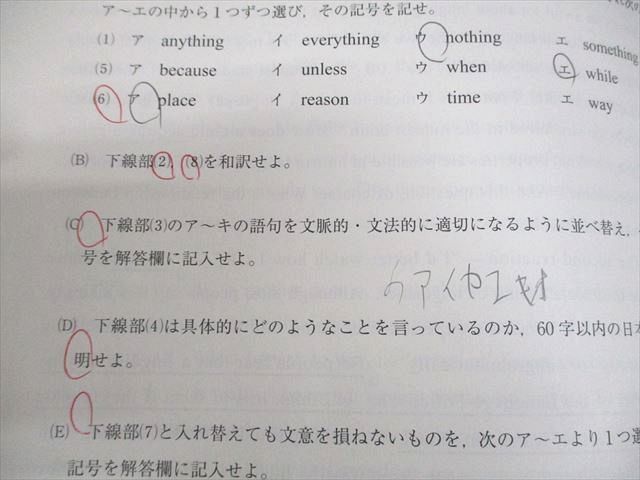 ア～エの中から1つずつ選び，その記号を記せ。
(1) ア anything イ everything ウ nothing エ something
(5) ア because イ unless ウ when エ while
(6) ア place イ reason ウ time エ way
(B) 下線部(2)，(8)を和訳せよ。
(C) 下線部(3)のア～キの語句を文脈的・文法的に適切になるように並べ替え，
号を解答欄に記入せよ。
アイカエキオ
(D) 下線部(4)は具体的にどのようなことを言っているのか，60字以内の日本
明せよ。
(E) 下線部(7)と入れ替えても文意を損ねないものを，次のア～エより1つ選
記号を解答欄に記入せよ。